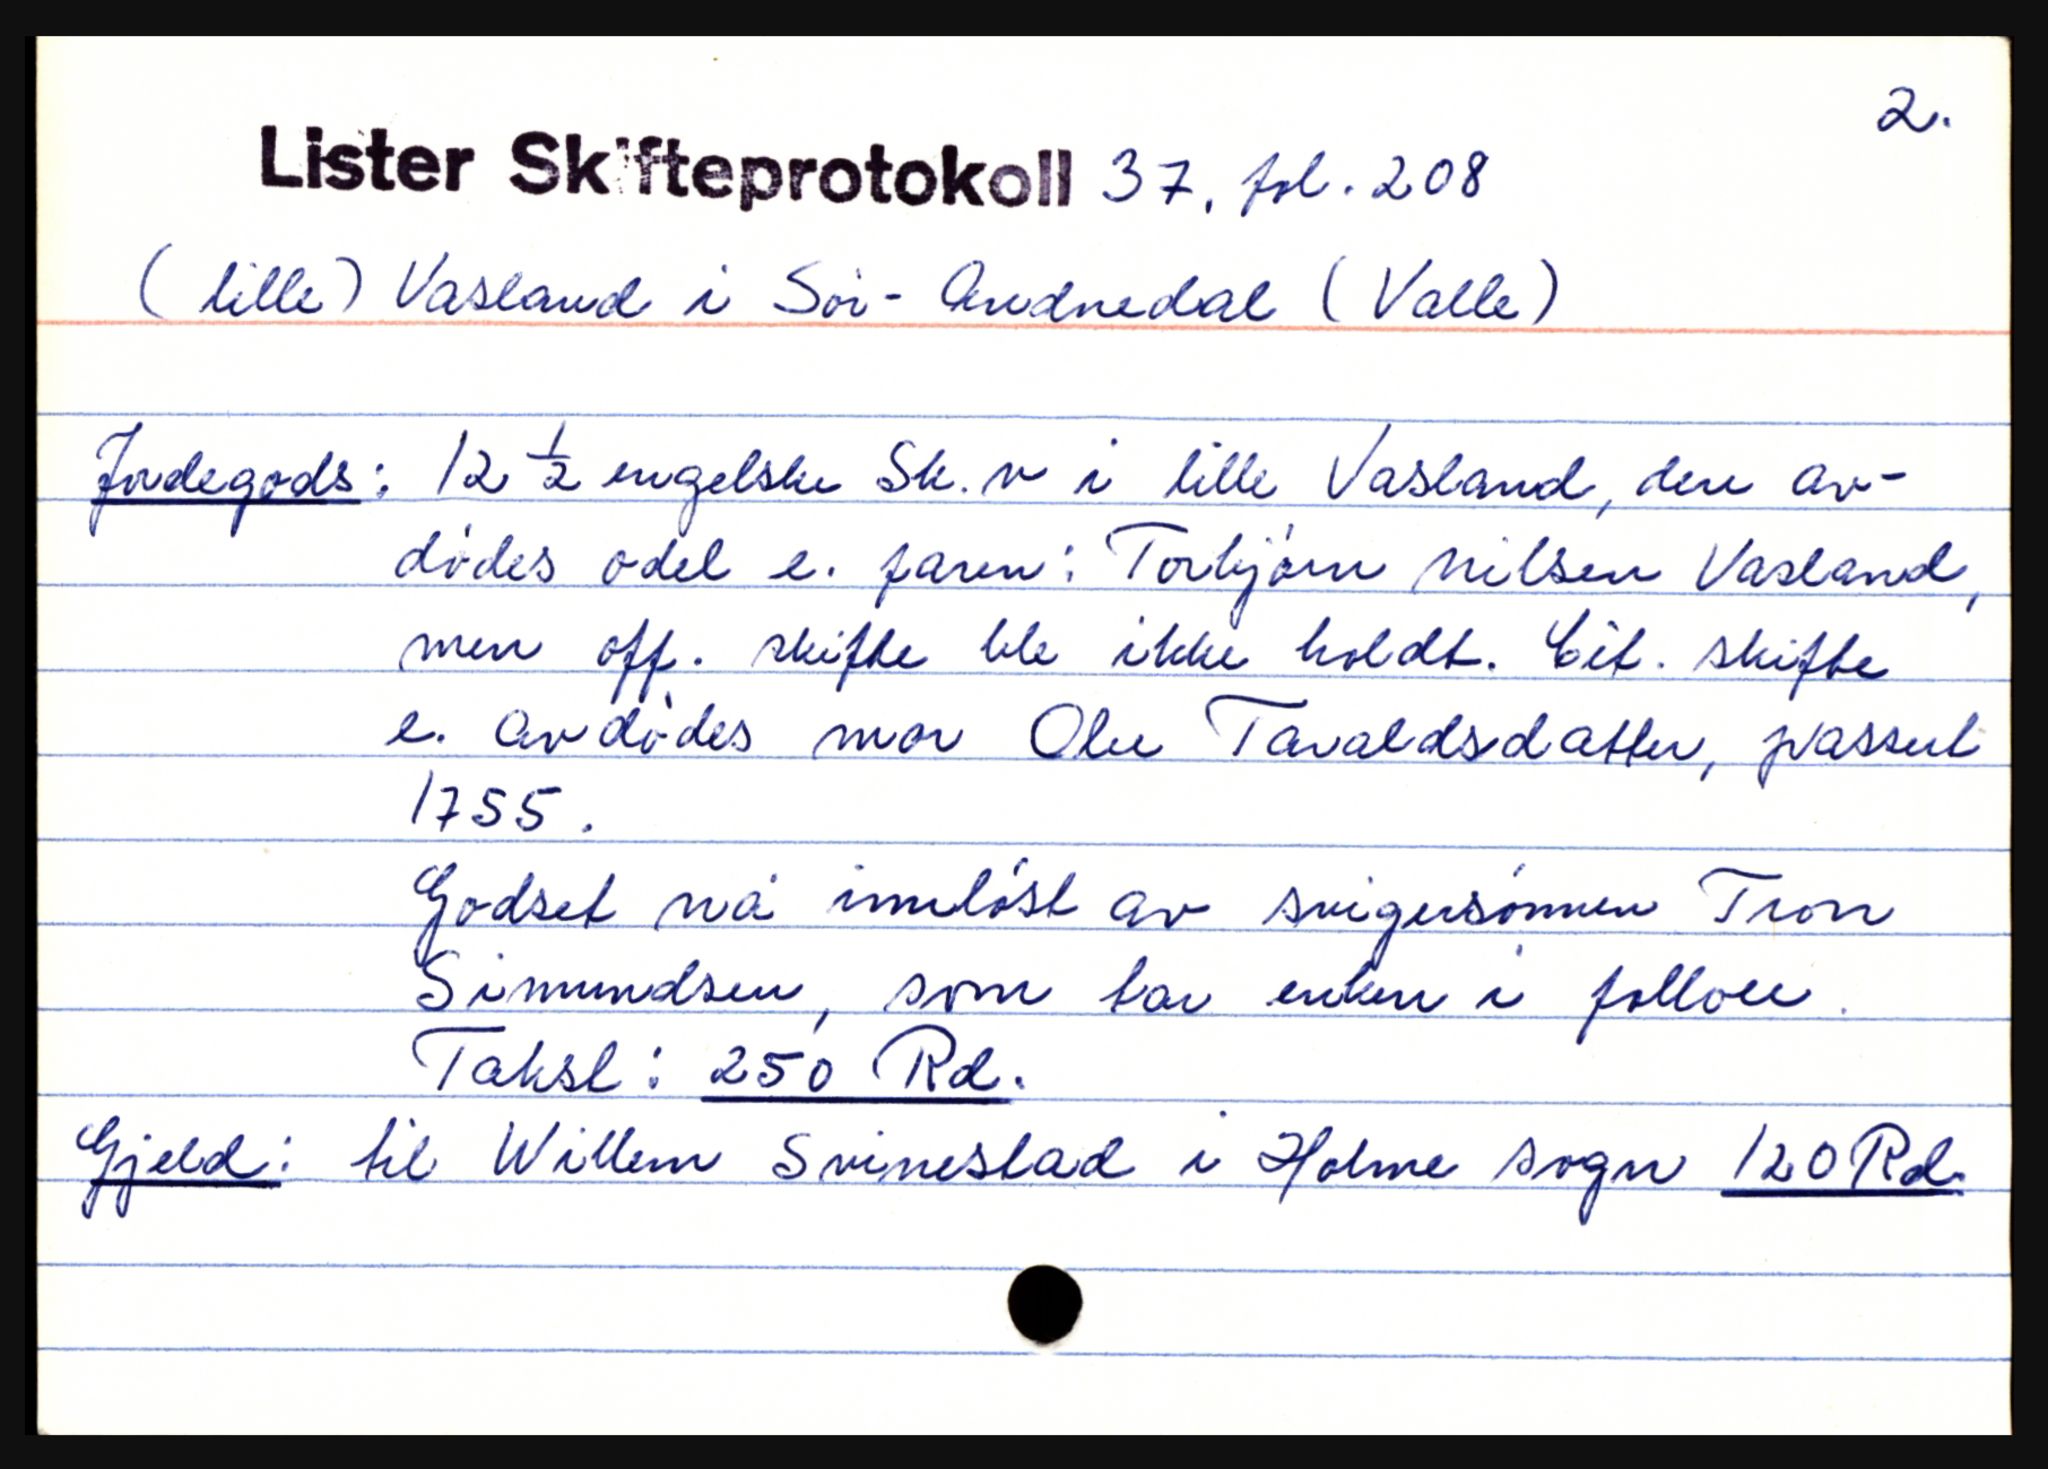 2.
Lister Skifteprotokoll 37, fol. 208
(lille) Vasland i Sör-Audnedal (Valle)
Jordegods: 12 1/2 engelske Sk. v i lille Vasland, den av-
dødes odel e. faren: Torbjørn Nilsen Vasland,
men off. skifte ble ikke holdt. Cit. skifte
e. avdødes mor Olu Tavaldsdatter, passert
1755.
Godset nå innløst av svigersønnen Tron
Simundsen, som tar enken i follou.
Takst: 250 Rd.
Gjeld: til Willem Svinestad i Holme sogn 120 Rd.